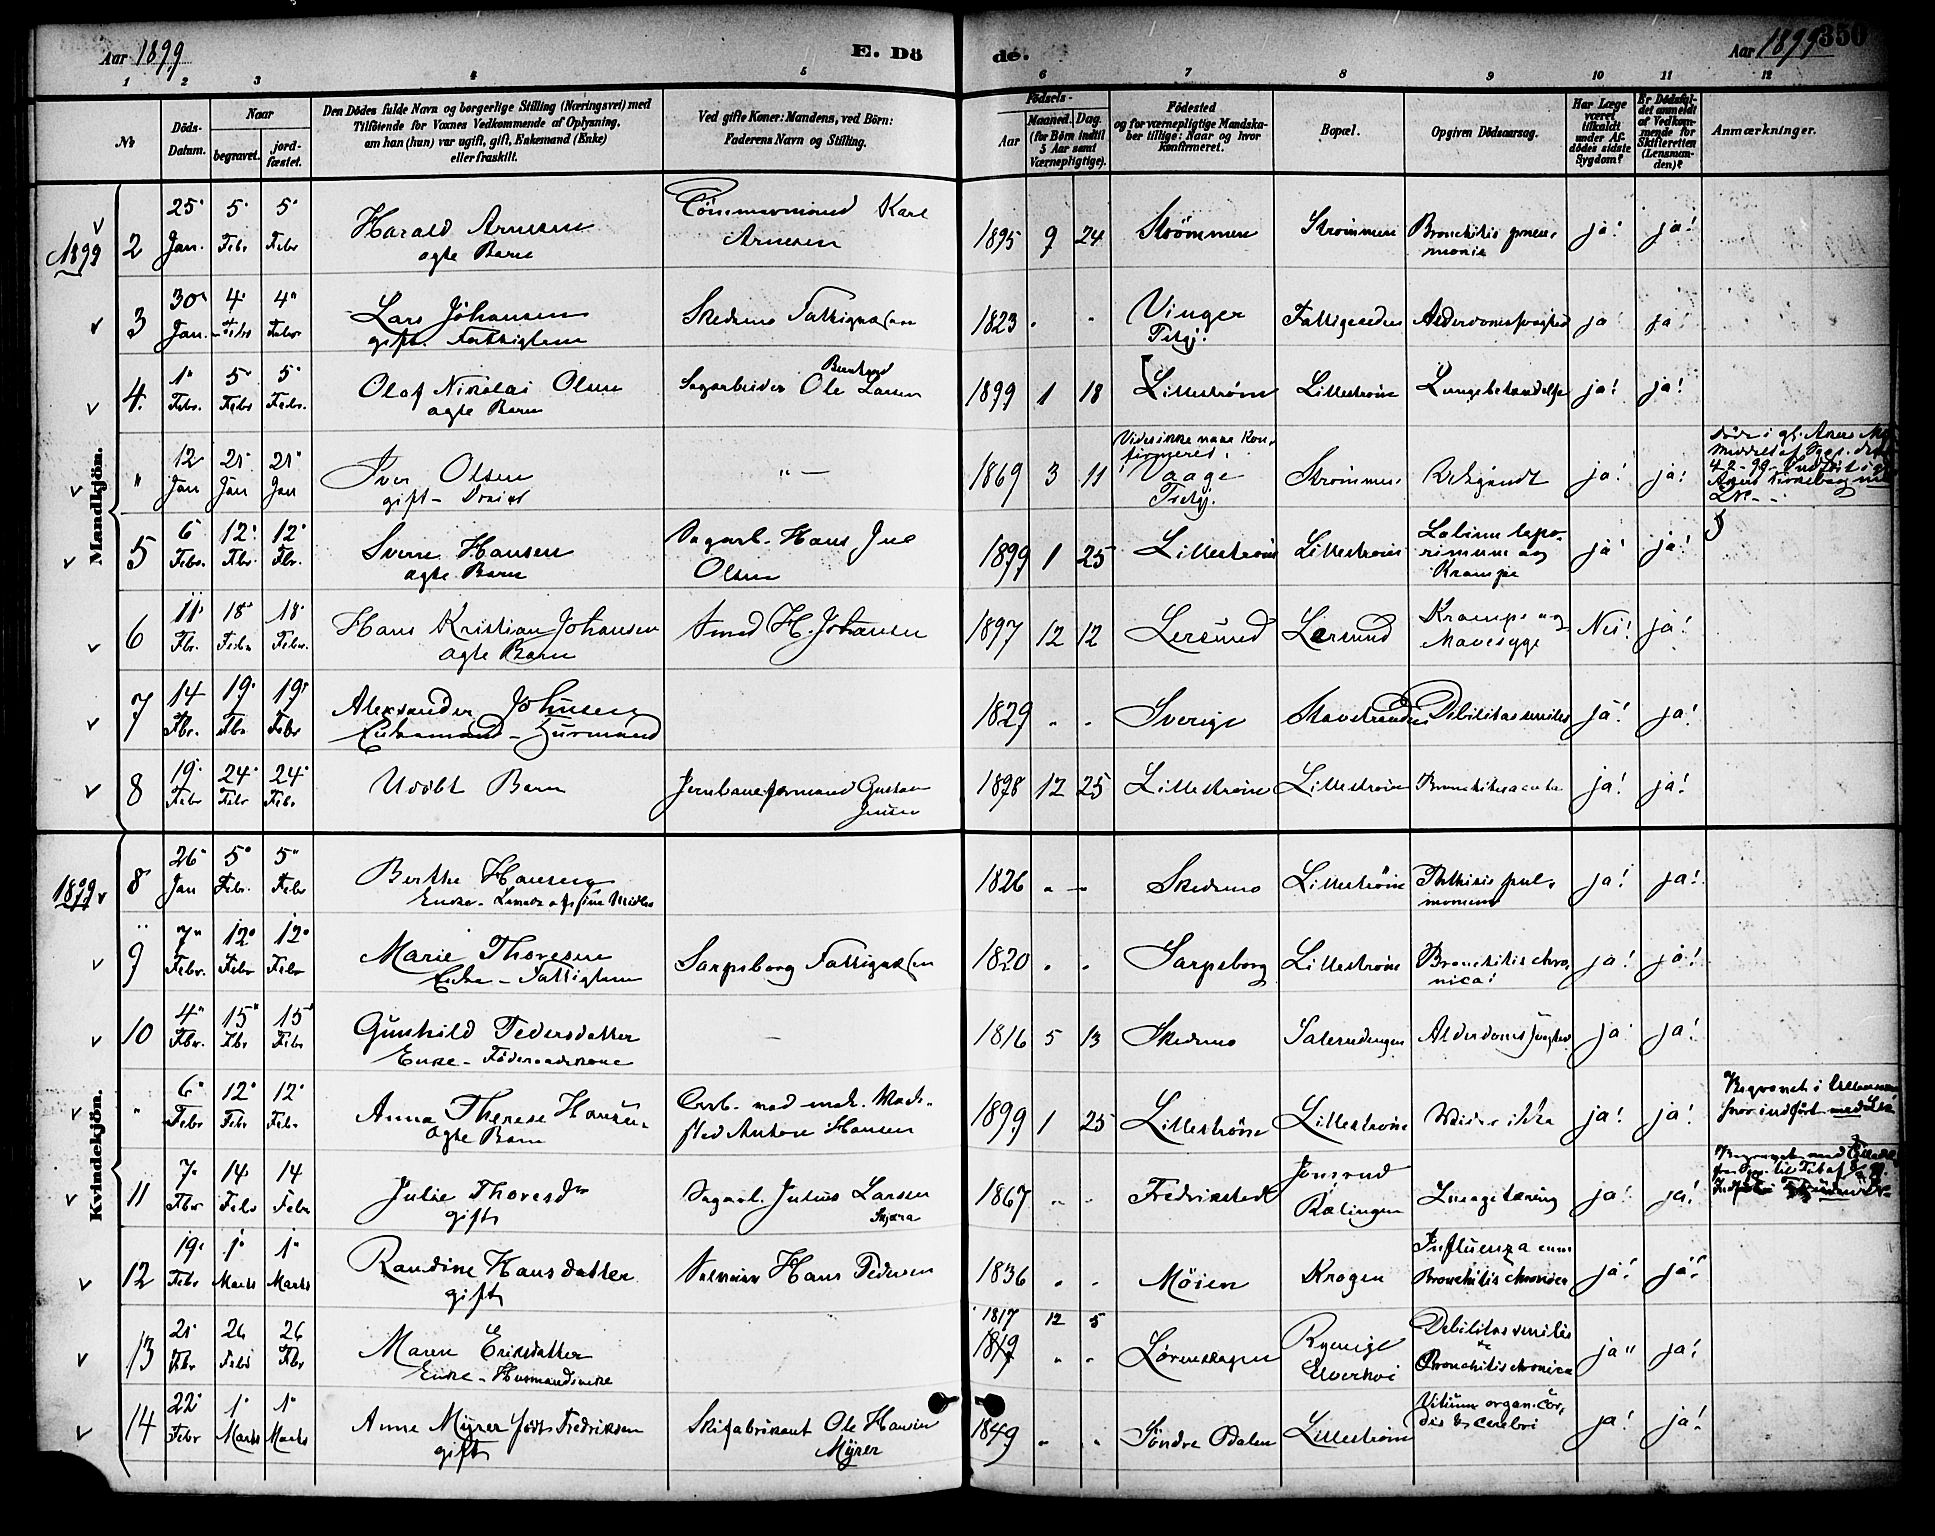 Aar 1899
E. Dö
de.
Aar 1899
350
1 2 3 4 5 6 7 8 9 10 11 12
No
Döds-Datum.
Naar
begravet.
jord-fæstet.
Den Dödes fulde Navn og borgerlige Stilling (Næringsvei) med
Tilföiende for Voxnes Vedkommende af Oplysning,
om han (hun) var ugift, gift, Enkemand (Enke)
eller fraskilt.
Ved gifte Koner: Mandens, ved Börn:
Faderens Navn og Stilling.
Födsels-
Aar
Maaned. Dag.
(for Börn indtil
5 Aar samt
Værnepligtige).
Födested
og for værnepligtige Mandska-
ber tillige: Naar og hvor
Konfirmeret.
Bopæl.
Opgiven Dödsaarsag.
Har Læge
været
tilkaldt
under Af-
dödes sidste
Sygdom?
Er Dödsfal-
det anmeldt
af Vedkom-
mende for
Skifteretten
(Lensman-
den)?
Anmærkninger.
Mandkjön.
1899 2 25 Jan. 5 Febr 5 Febr Harald Arnesen Tömmermand Karl 1895 9 24 Strömmen Strömmen Bronchitis pneu- ja! ja!
ægte Barn Arnesen monia
3 30 Jan. 4 Febr 4 Febr Lars Johansen Skedsmo Fattigvæsen 1823 Vinger Aldersdomssvaghed ja ja!
gift. Fattiglem
4. 1 Febr. 5 Febr 5 Febr. Olaf Nikolai Olsen Sagarbeider Ole Bernhard Larsen 1899 1 18 Lilleström Lilleström Lungebetændelse ja! ja!
ægte Barn
" 12 Jan 21 Jan 21 Jan Iver Olsen " — 1869 3 11 Vaage Strömmen ja! ja!
gift
5 6 Febr. 12 Fbr. 12 Fbr. Sverre Hansen Sagarb. Hans Jul 1899 1 25 Lilleström Lilleström Labium lepo- ja! ja!
ægte Barn Olsen rinum og
Krampe
6 11 Fbr. 18 Febr 18 Febr. Hans Kristian Johansen H. Johansen 1897 12 12 Lersund Lersund Krampe og Nei! ja!
ægte Barn Mavesyge
7 14 Fbr. 19 Fbr 19 Febr Aleksander Johnsen 1829 Sverige Debilitas senilis ja! ja!
Enkemand
8 19 Febr 24 Febr 24 Febr Udöbt Barn Jernbaneformand Gustav 1898 12 25 Lilleström Lilleström Bronchitis acuta ja! ja!
Jensen
Kvindekjön.
1899 8 26 Jan 5 Febr. 5 Febr Berthe Hansen 1826 Skedsmo Lilleström Phthisis pul- ja! ja!
Enke. Levede af sine Midler
9 7 Febr. 12 Febr 12 Febr Marie Thoresen Sarpsborg Fattigvæsen 1820 Sarpsborg Lilleström Bronchitis chro- ja! ja!
Enke - Fattiglem nica!
10 4 Fbr. 15 Fbr 15 Febr Gunhild Pedersdatter — 1816 5 13 Skedsmo Aldersdomssvaghed ja ja!
Enke - Föderaadskone
" 6 Febr 12 Febr 12 Febr Anna Therese Hansen 1899 1 25 Lilleström Lilleström Vides ikke ja! ja!
ægte Barn Anton Hansen
11 7 Fbr 14 Febr 14 Febr Julie Thoresdr Sagarb. Julius Larsen 1867 Fredrikstad Lungetæring ja! ja!
gift Rælingen
12 19 Febr 1 Marts 1 Marts Randine Hansdatter Hans Pedersen 1836 Möien Krogen Influenza cum ja! ja!
gift Bronchitis chronica
13 21 Fbr 26 Febr 26 Fbr Maren Eriksdatter 1817 12 5 Lörenskogen Debilitas senilis ja ja!
Enke - Husmandsenke & Bronchitis chronica
14 22 Febr 1 Marts 1 Marts Anne Myrer födt Fredriksen Skifabrikant Ole Hansen 1849 Söndre Odalen Lilleström Vitium organ. cor- ja! ja!
gift Myrer dis & cerebri